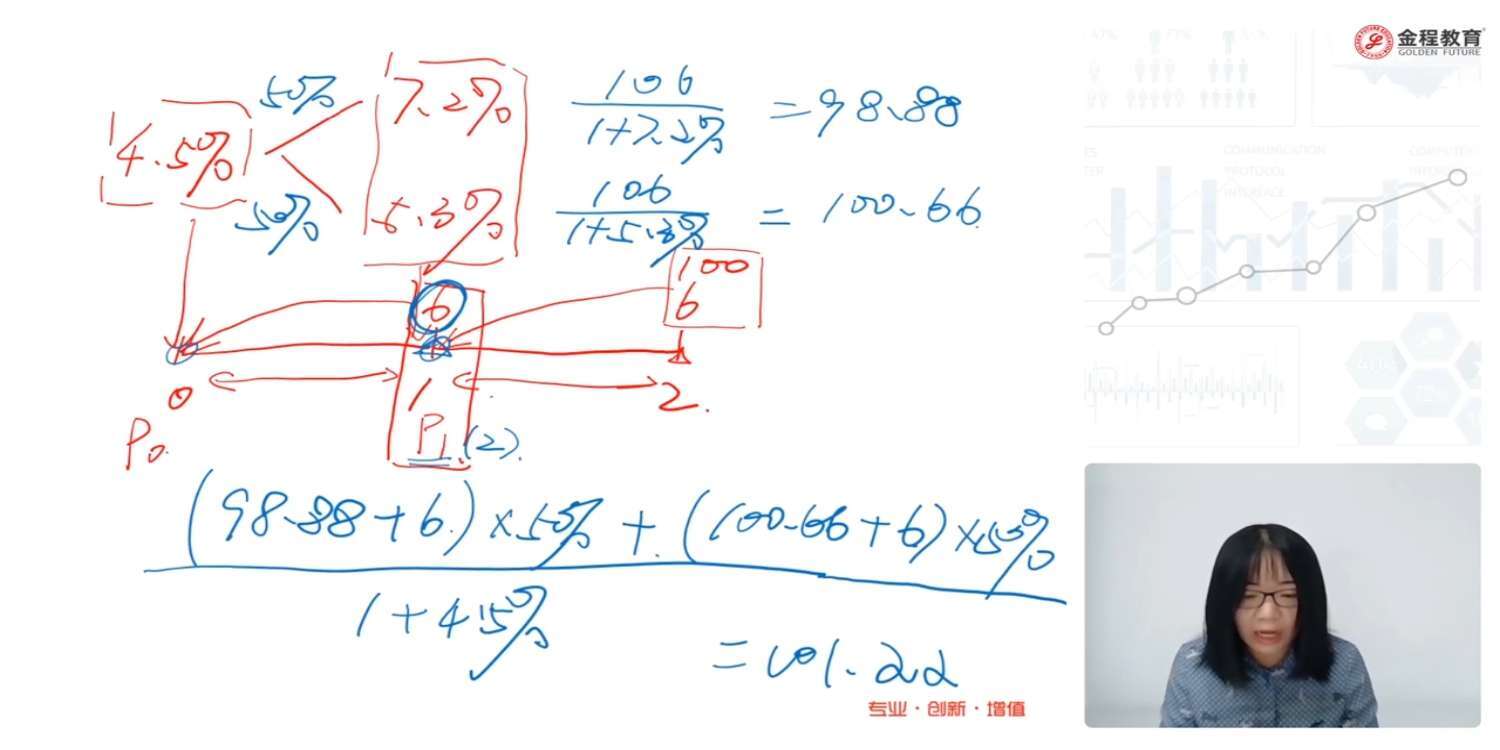 金程教育
GOLDEN FUTURE
50%
7.2%
106
1+7.2%
=98.88
4.5%
50%
5.3%
106
1+5.3%
= 100.66
100
6
6
0
1
2.
P0.
P1.
(2).
(98.88+6.)×50% + (100.66+6)×50%
1+4.5%
=101.22
专业·创新·增值
COMMUNICATION
PROTOLOL
INTEREACE